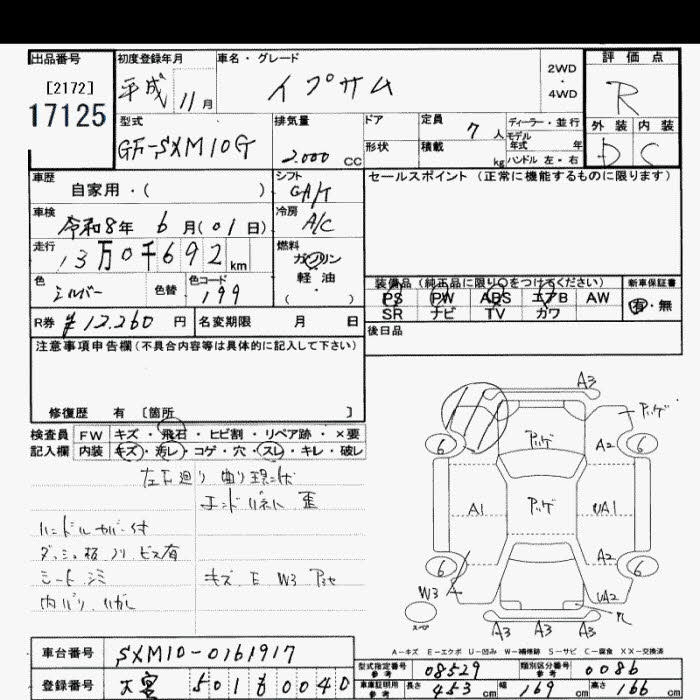 出品番号
[2172]
17125
初度登録年月
平成 11月
車名・グレード
イプサム
2WD
・
4WD
評価点
R
型式
GF-SXM10G
排気量
2.000 CC
ドア
形状
定員 7 人
積載 kg
ディーラー・並行
モデル
年式 年
ハンドル 左・右
外装 内装
D C
車歴
自家用・( )
シフト
GA/T
セールスポイント (正常に機能するものに限ります)
車検
令和8年 6月(01日)
冷房
A/C
走行
13万0千692km
燃料
ガソリン
軽・油
・
( )
色
シルバー
色替
色コード
199
装備品 (純正品に限り○をつけてください)
PS PW ABS エアB AW
SR ナビ TV カワ
新車保証書
有・無
R券 ¥12.260 円
名変期限 月 日
後日品
注意事項申告欄(不具合内容等は具体的に記入して下さい)
修復歴 有 〔箇所 〕
検査員
記入欄
FW キズ・飛石・ヒビ割・リペア跡・×要
内装 キズ・汚レ・コゲ・穴・スレ・キレ・破レ
エンドパネル 歪
ハンドルカバー付
ダッシュ板 ノリ ビス有
シート シミ
キズ E W3
内バリ ハガレ
A3
6
A2
6
A1
UA1
A2
6
6
W3
UA2
スペア
A3 A3 A3
A-キズ E-エクボ U-凹み W-補修跡 S-サビ C-腐食 XX-交換済
車台番号 SXM10-0161917
登録番号 大宮 501 も 0040
型式指定番号
参考
08529
類別区分番号
参考
0086
車庫証明用
参考
長さ 453 cm 幅 169 cm 高さ 166 cm